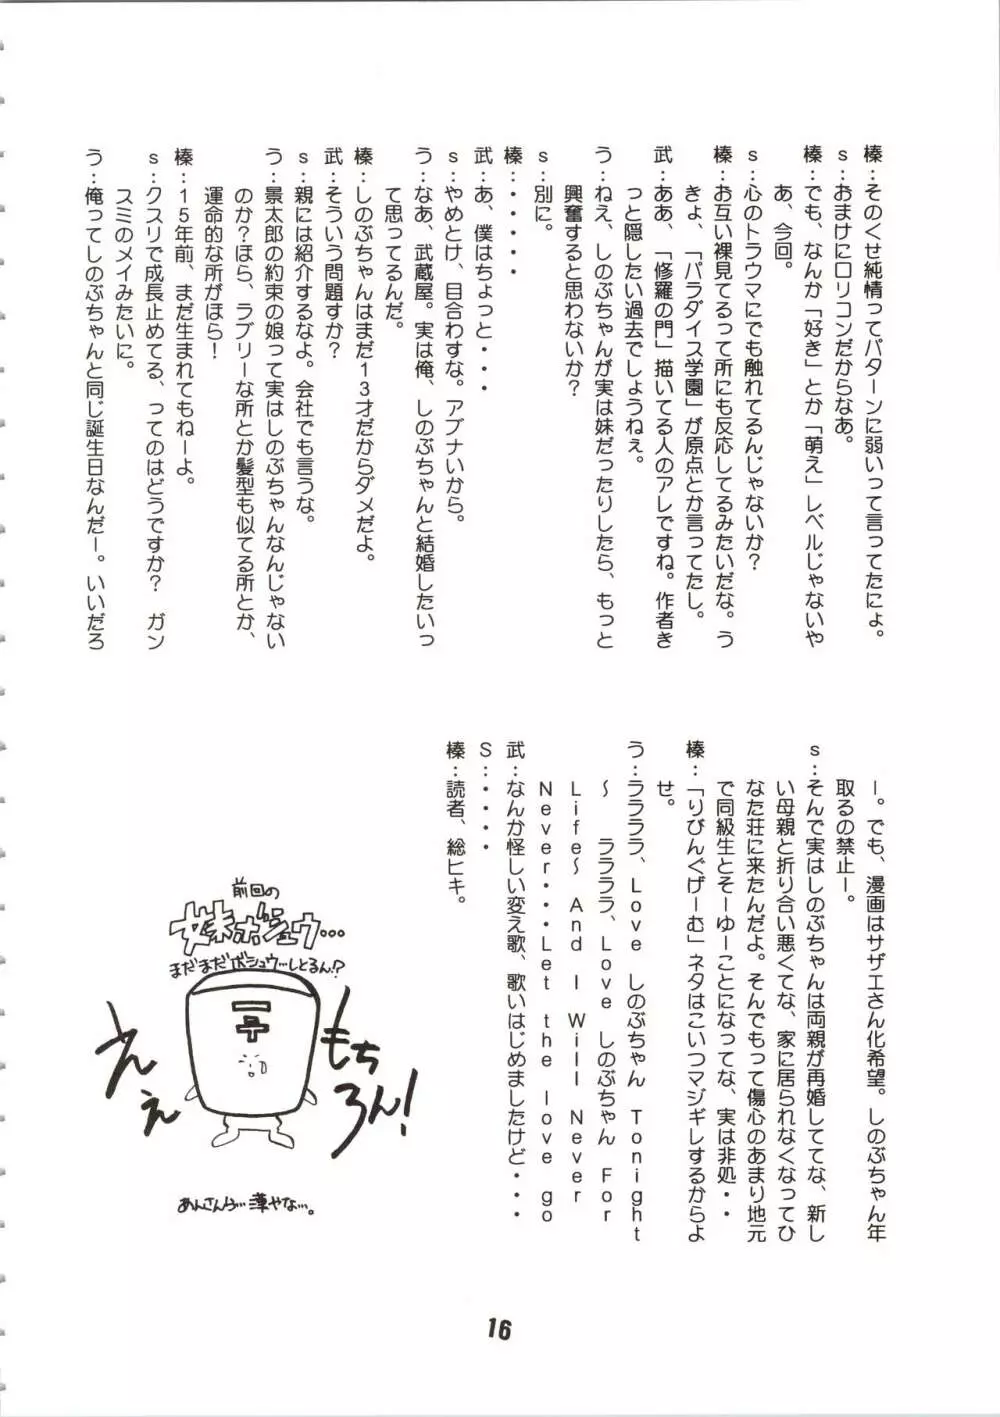 榛：そのくせ純情ってパターンに弱いって言ってたによ。
s：おまけにロリコンだからなあ。
榛：でも、なんか「好き」とか「萌え」レベルじゃないや
あ、今回。
s：心のトラウマにでも触れてるんじゃないか？
榛：お互い裸見てるって所にも反応してるみたいだな。う
きょ、「パラダイス学園」が原点とか言ってたし。
武：ああ、「修羅の門」描いてる人のアレですね。作者き
っと隠したい過去でしょうねぇ。
う：ねえ、しのぶちゃんが実は妹だったりしたら、もっと
興奮すると思わないか？
s：別に。
榛：・・・・・
武：あ、僕はちょっと・・・
s：やめとけ、目合わすな。アブナいから。
う：なあ、武蔵屋。実は俺、しのぶちゃんと結婚したいっ
て思ってるんだ。
榛：しのぶちゃんはまだ13才だからダメだよ。
武：そういう問題すか？
s：親には紹介するなよ。会社でも言うな。
う：景太郎の約束の娘って実はしのぶちゃんなんじゃない
のか？ほら、ラブリーな所とか髪型も似てる所とか、
運命的な所がほら！
榛：15年前、まだ生まれてもねーよ。
s：クスリで成長止めてる、ってのはどうですか？　ガン
スミのメイみたいに。
う：俺ってしのぶちゃんと同じ誕生日なんだー。いいだろ
ー。でも、漫画はサザエさん化希望。しのぶちゃん年
取るの禁止ー。
s：そんで実はしのぶちゃんは両親が再婚しててな、新し
い母親と折り合い悪くてな、家に居られなくなってひ
なた荘に来たんだよ。そんでもって傷心のあまり地元
で同級生とそーゆーことになってな、実は非処・・
榛：「りびんぐげーむ」ネタはこいつマジギレするからよ
せ。
う：ララララ、Love しのぶちゃん Tonight
～　ララララ、Love しのぶちゃん For
Life～ And I Will Never
Never・・・Let the love go
武：なんか怪しい変え歌、歌いはじめましたけど・・・
S：・・・・
榛：読者、総ヒキ。
前回の
妹ボシュウ…
まだまだボシュウ…しとるん!?
もちろん！
ええ
あんさんら…漢やな…。
16